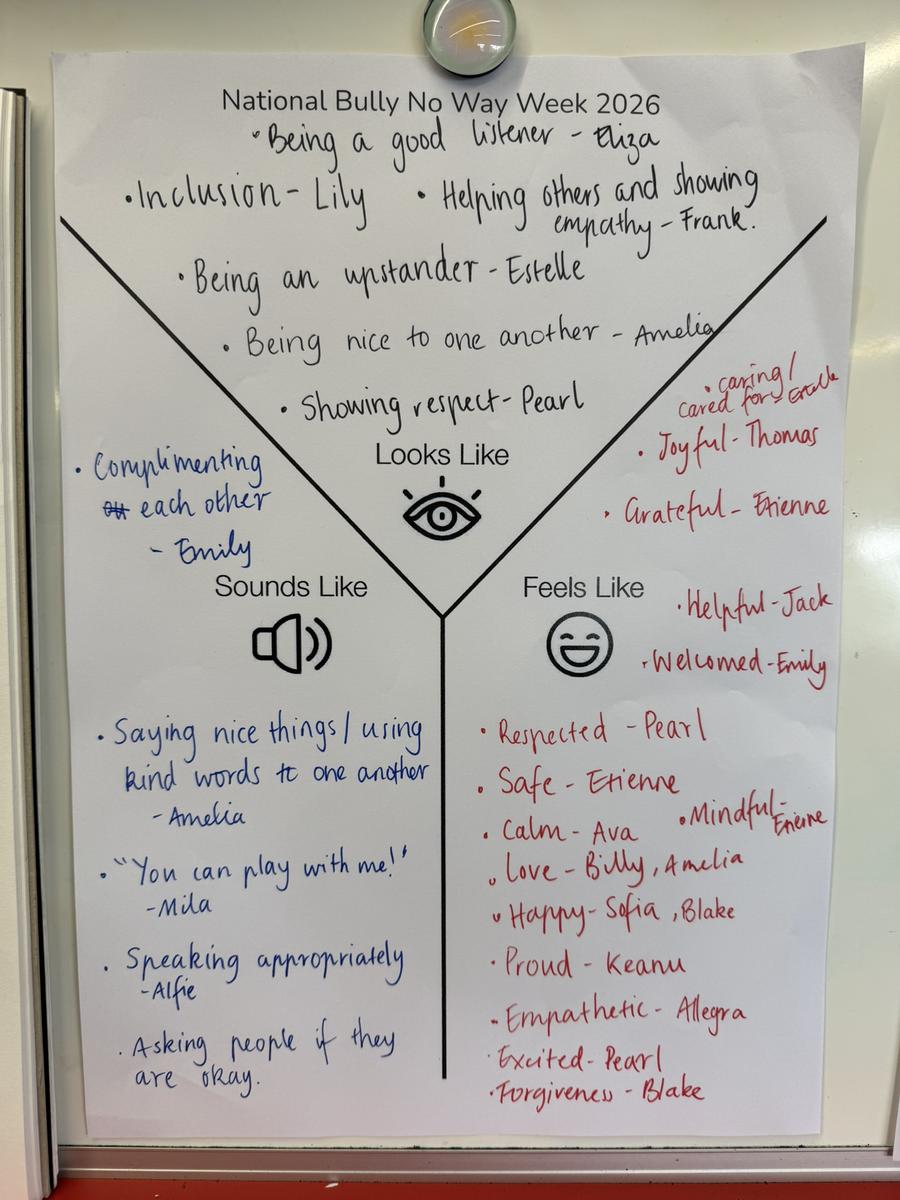 National Bully No Way Week 2026
• Being a good listener - Eliza
• Inclusion - Lily
• Helping others and showing
empathy - Frank.
• Being an upstander - Estelle
• Being nice to one another - Amelia
• Showing respect - Pearl
Looks Like
• Complimenting
each other
- Emily
Sounds Like
• Saying nice things / using
kind words to one another
- Amelia
• "You can play with me!"
- Mila
• Speaking appropriately
- Alfie
• Asking people if they
are okay.
• caring /
cared for -
• Joyful - Thomas
• Grateful - Etienne
Feels Like
• Helpful - Jack
• Welcomed - Emily
• Respected - Pearl
• Safe - Etienne
• Mindful -
Etienne
• Calm - Ava
• Love - Billy, Amelia
• Happy - Sofia, Blake
• Proud - Keanu
• Empathetic - Allegra
• Excited - Pearl
• Forgiveness - Blake